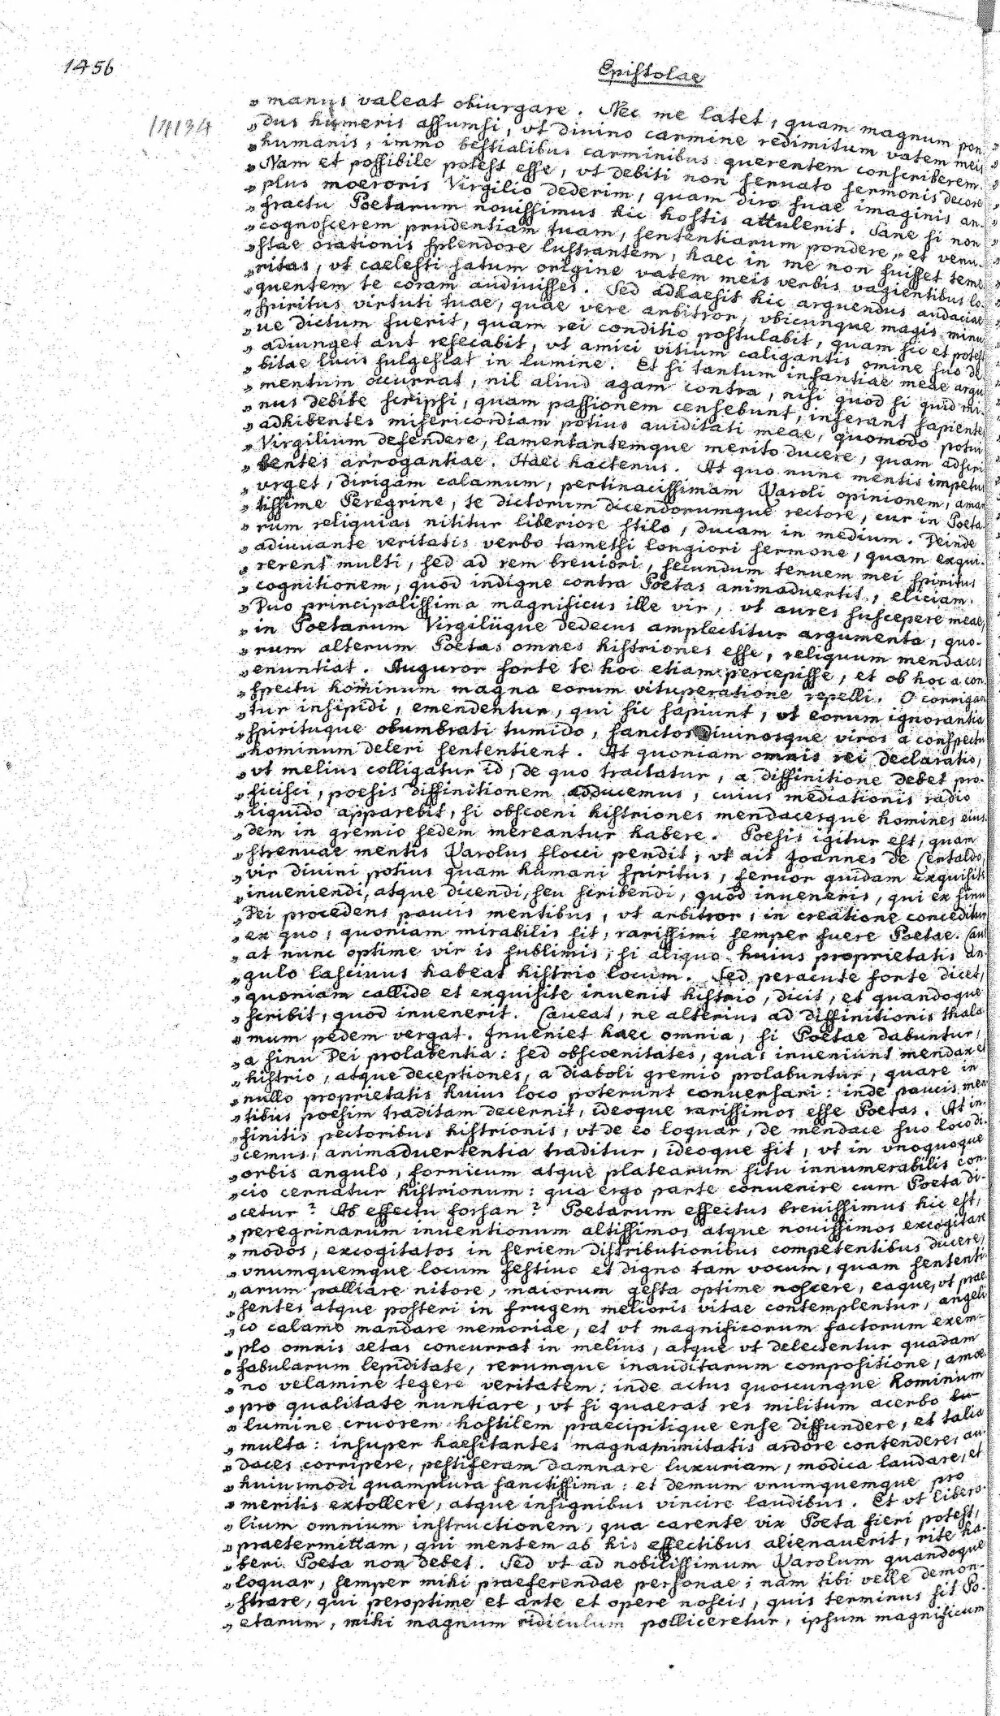 1456
Epistolae
1434
„ manus valeat obiurgare. Nec me latet, quam magnum pon
„ dus humeris assumsi, vt divino carmine redimitum vatem meis
„ humanis, immo bestialibus carminibus querentem conscriberem.
„ Nam et possibile potest esse, vt debiti non servato sermonis decore
„ plus moeroris Virgilio dederim, quam diro suae imaginis an-
„ fractu Poetarum novissimus hic hostis attulerit. Sane si non
„ cognoscerem prudentiam tuam, sententiarum pondere, et venu-
„ stae orationis splendore lustrantem, haec in me non fuisset teme
„ ritas, vt caelesti satum origine vatem meis verbis vagientibus lo-
„ quentem te coram audivisses. Sed adhaesit hic arguendus audaciae
„ spiritus virtuti tuae, quae vere arbitror, vbicunque magis minus
„ ue dictum fuerit, quam rei conditio postulabit, quam sic et potest
„ adiunget aut resecabit, vt amici vitium caligantis omine suo de
„ bitae lucis fulgescat in lumine. Et si tantum infantiae meae argu
„ mentum occurrat, nil aliud agam contra, nisi quod si quid mi-
„ nus debite scripsi, quam passionem censebunt, inserant sapientes
„ adhibentes misericordiam potius aviditati meae, quomodo potui
„ Virgilium defendere, lamentantemque merito ducere, quam adscri
„ bentes arrogantiae. Haec hactenus. At quo nunc mentis impetus
„ vrget, dirigam calamum, pertinacissimam Karoli opinionem, aman
„ tissime Peregrine, te dictorum dicendorumque rectore, cur in Poeta
„ rum reliquias nititur liberiore stilo, ducam in medium. Deinde
„ adiuvante veritatis verbo tametsi longiori sermone, quam exqui-
„ rerent multi, sed ad rem breviori, secundum tenuem mei spiritus
„ cognitionem, quod indigne contra Poetas animadvertit, eliciam.
„ Duo principalissima magnificus ille vir, vt aures suscepere meae,
„ in Poetarum Virgiliique dedecus amplectitur argumenta, quo-
„ rum alterum Poetas omnes histriones esse, reliquum mendaces
„ enuntiat. Auguror forte te hoc etiam percepisse, et ob hoc a con
„ spectu hominum magna eorum vituperatione repelli. O corrigan
„ tur insipidi, emendentur, qui sic sapiunt, vt eorum ignorantia
„ spirituque obumbrati tumido, sanctos divinosque viros a conspectu
„ hominum deleri sententient. At quoniam omnis rei declaratio,
„ vt melius colligatur id, de quo tractatur, a diffinitione debet pro-
„ ficisci, poesis diffinitionem adducemus, cuius mediationis radio
„ liquido apparebit, si obscoeni histriones mendacesque homines eius
„ dem in gremio sedem mereantur habere. Poesis igitur est, quam
„ strenuae mentis Karolus flocci pendit, vt ait Joannes de Certaldo,
„ vir divini potius quam humani spiritus, fervor quidam exquisite
„ inveniendi, atque dicendi, seu scribendi, quod inveneris, qui ex sinu
„ Dei procedens paucis mentibus, vt arbitror, in creatione conceditur
„ ex quo, quoniam mirabilis sit, rarissimi semper fuere Poetae. Cau
„ at nunc optime vir is sublimis, si aliquo huius proprietatis an-
„ gulo lascivus habeat histrio locum. Sed peracute forte dicet,
„ quoniam callide et exquisite invenit histrio, dicit, et quandoque
„ scribit, quod invenerit. Caveat, ne alterius ad diffinitionis thala
„ mum pedem vergat. Inveniet haec omnia, si Poetae dabuntur,
„ a sinu Dei prolabentia: sed obscoenitates, quas inveniunt mendax et
„ histrio, atque deceptiones, a diaboli gremio prolabuntur, quare in
„ nullo proprietatis huius loco poterunt conversari: inde paucis men
„ tibus poesim traditam decernit, ideoque rarissimos esse Poetas. At in-
„ finitis pectoribus histrionis, vt de eo loquar, de mendace suo loco di-
„ cemus, animadvertentia traditur, ideoque fit, vt in vnoquoque
„ orbis angulo, fornicum atque platearum situ innumerabilis con-
„ cio cernatur histrionum: qua ergo parte convenire cum Poeta di-
„ cetur? Ab effectu forsan? Poetarum effectus brevissimus hic est,
„ peregrinarum inventionum altissimos atque novissimos excogitare
„ modos, excogitatos in seriem distributionibus competentibus ducere,
„ vnumquemque locum festivo et digno tam vocum, quam sententi-
„ arum palliare nitore, maiorum gesta optime noscere, eaque, vt prae
„ sentes atque posteri in frugem melioris vitae contemplentur, angeli
„ co calamo mandare memoriae, et vt magnificorum factorum exem-
„ plo omnis aetas concurrat in melius, atque vt delectentur quadam
„ fabularum lepiditate, rerumque inauditarum compositione, amoe
„ no velamine tegere veritatem: inde actus quoscunque hominum
„ pro qualitate nuntiare, vt si quaerat res militum acerbo
„ lumine cruorem hostilem praecipitique ense diffundere, et talia
„ multa: insuper haesitantes magnanimitatis ardore contendere, au
„ daces corripere, pestiferam damnare luxuriam, modica laudare, et
„ huiusmodi quamplura sanctissima: et demum vnumquemque pro
„ meritis extollere, atque insignibus vincire laudibus. Et vt libera-
„ lium omnium instructionem, qua carente vix Poeta fieri potest,
„ praetermittam, qui mentem ab his effectibus alienaverit, rite ha-
„ beri Poeta non debet. Sed vt ad nobilissimum Karolum quandoque
„ loquar, semper mihi praeferendae personae; nam tibi velle demon-
„ strare, qui peroptime et arte et opere noscis, quis terminus sit Po-
„ etarum, mihi magnum ridiculum polliceretur, ipsum magnificum